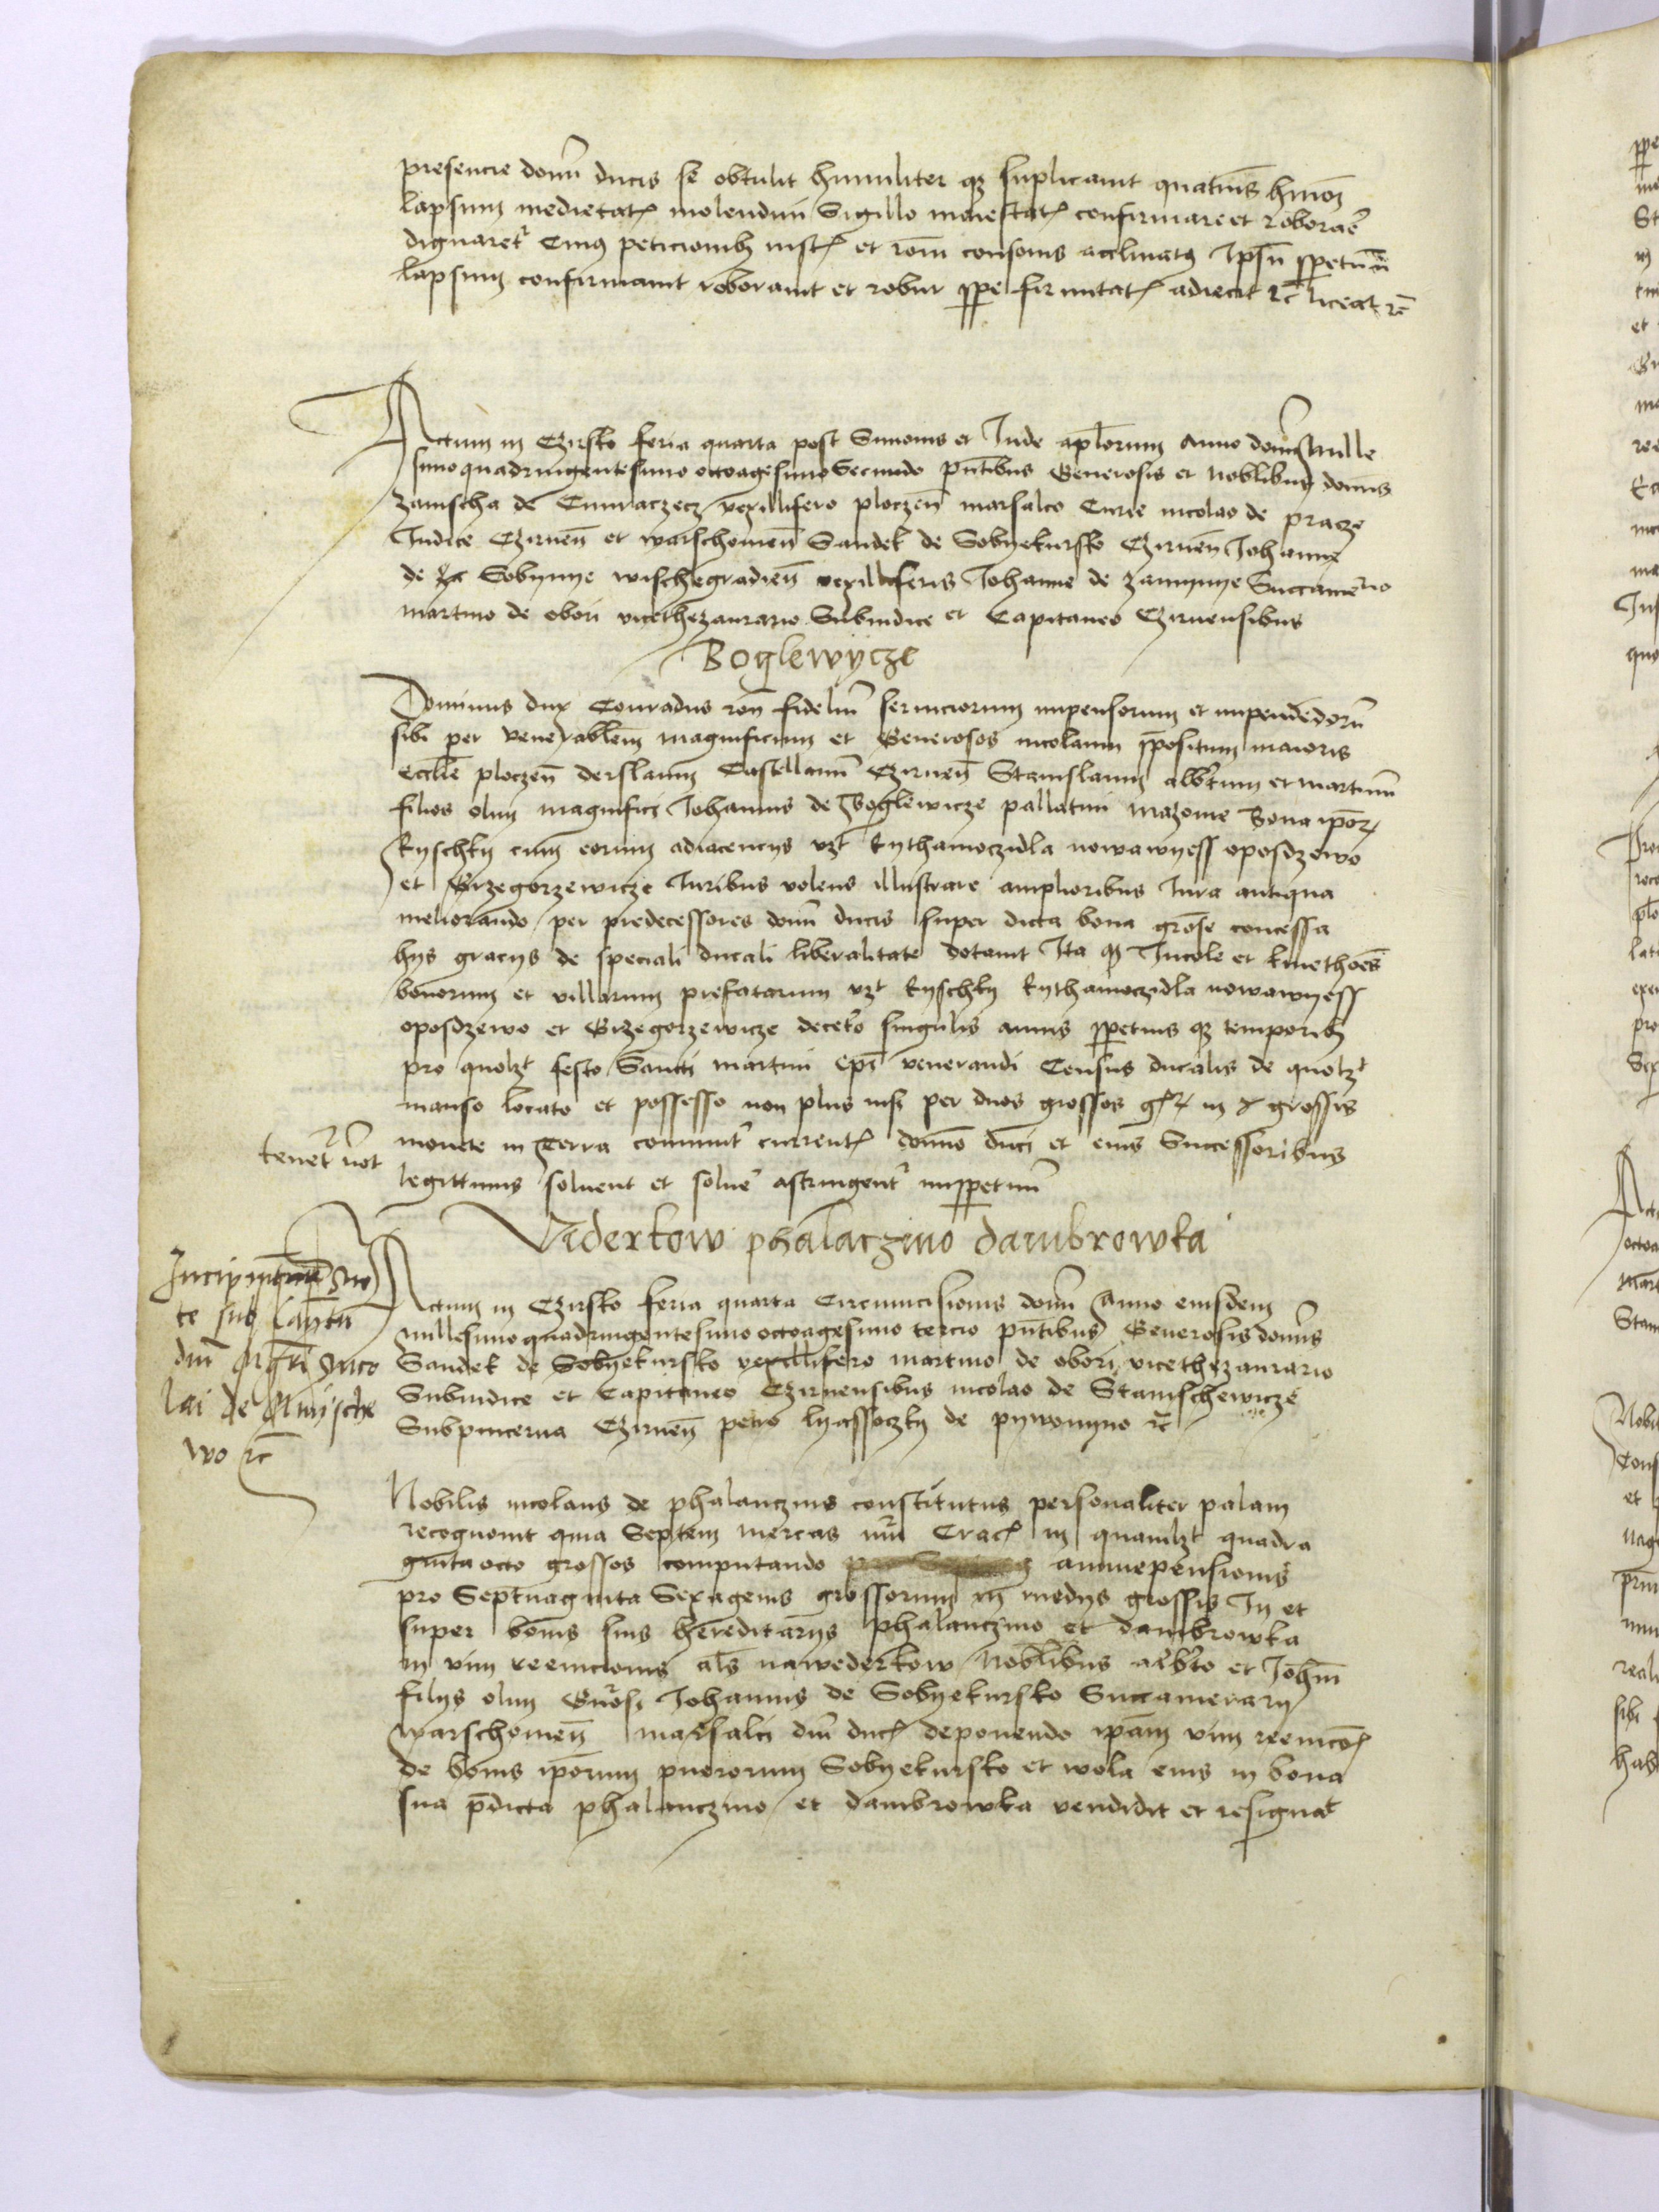 presencie domini ducis se obtulit humiliter qz suplicavit quatenus hmoi
lapsum medietatis molendini Sigillo maiestatis confirmare et roborare
dignaret Cuius peticionibus iustis et roni consonis acclinatus Ipsum perpetuum
lapsum confirmavit roboravit et robur perpe firmitatis adiecit etc liceat etc
Actum in Czirsko feria quarta post Simonis et Jude aplorum Anno domini Mille
simo quadringentesimo octoagesimo Secundo pntibus Generosis et Noblibus domnis
Zamscha de vexillifero ploczen marsalco Curie nicolao de pracze
Judice Czirnen et warschouien Sandek de Sobyekursko Czirnen Johanne
de Sobynye wischegradien vexilliferis Johanne de Zamynye Succamerio
martino de obori vicethezaurario Subiudice et Capitaneo Czirnensibus
Boglewycze
Dominus dux Conradus ron fidelium serviciorum impensorum et impendedorum
sibi per venerablem magnificum et Generosos nicolaum ppositum maioris
ecclie ploczen derslaum Castellanum Czirnen Stanislaum albertum et martinum
filios olim magnifici Johannis de Boglewicze pallatini mazouie bona ipor
kyschky cum eorum adiacencys vzt kythamoczidla nowawyess oposdzewo
et Grzegorzewicze Juribus volens illustrare amplioribus Jura antiqua
meliorando per predecessores domini ducis super dicta bona grose concessa
hys gracys de speciali ducali liberalitate dotavit Ita qz Incole et kmethoes
bonorum et villarum prefatarum vzt kyschky kythamoczidla nowawyess
oposdzewo et Grzegorzewicze decetero singulis annis perpetuis qz temporibz
pro quolzt festo Sancti martini epi venerandi Census ducalis de quolzt
manso locato et possesso non plus nisi per duos grossos in grossis
monete in terra comuniter currentis domino duci et eius Successoribus
legittimis solvent et solvere astringentur imperpetuum
tenet not
Vederkow phalaczino dambrowka
Incipiunt
te sub Cantu
dni mgri Nico
lai de Mnische
wo etc
Actum in Czirsko feria quarta Circumcisionis domini Anno eiusdem
millesimo quadringentesimo octoagesimo tercio pntibus Generosis domnis
Sandek de Sobyekursko vexillifero martino de obori vicethezaurario
Subiudice et Capitaneo Czirnensibus nicolao de Stanischewicze
Subpincerna Czirnen petro lyassoczky de pywonyno etc
Nobilis nicolaus de phalanczino constitutus personaliter palam
recognovit quia Septem mercas nri Crac in quamlzt quadra
ginta octo grossos computando annuepensionis
pro Septuaginta Sexagenis grossorum in medys grossis In et
super bonis suis hereditarys phalanczino et dambrowka
in vim reempcionis als nawederkow Noblibus alberto et Johni
filys olim Gnrosi Johannis de Sobyekursko Succamerary
warschouien marsalci dni ducis deponendo ipam vim reempcois
de bonis iporum puerorum Sobyekursko et wola eius in bona
sua pdicta phalanczino et dambrowka vendidit et resignat